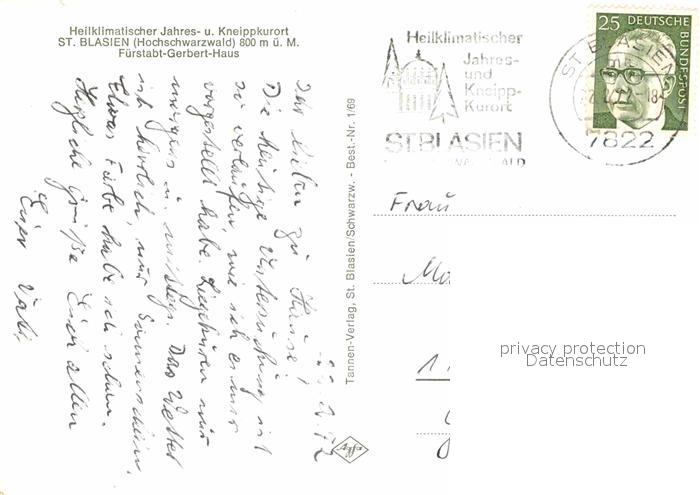 Heilklimatischer Jahres- u. Kneippkurort
ST. BLASIEN (Hochschwarzwald) 800 m ü. M.
Fürstabt-Gerbert-Haus
Ihr Lieben zu Hause!
Die heutige Untersuchung ist
so verlaufen wie ich es mir
vorgestellt habe. Liegekuren nur
morgens u. mittags. Das Wetter
ist herrlich, nur Sonnenschein.
Etwas Farbe habe ich schon.
Herzliche Grüße Euch allen
Euer Vati
Tannen-Verlag, St. Blasien/Schwarzw. - Best.-Nr. 1/69
Agfa
Heilklimatischer
Jahres-
und
Kneipp-
Kurort
ST. BLASIEN
25 DEUTSCHE
BUNDESPOST
ST BLASIEN
7822
Frau
privacy protection
Datenschutz